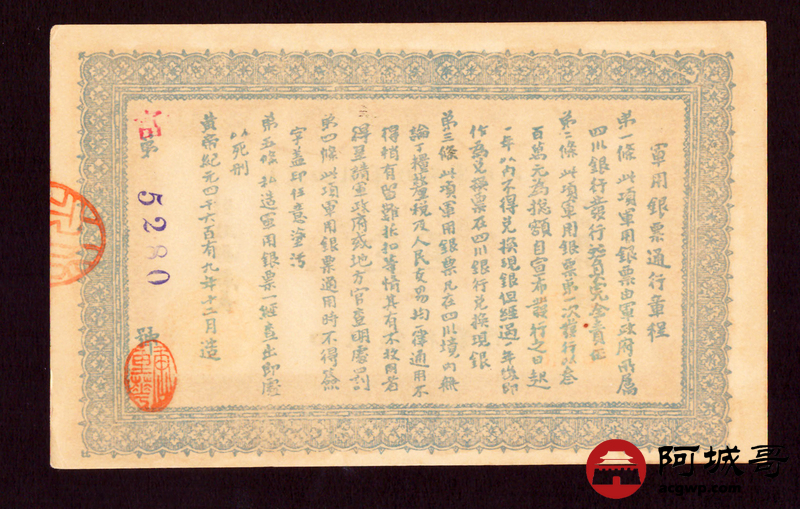 軍用銀票通行章程
第一條此項軍用銀票由軍政府所屬
四川銀行發行並負完全責任
第二條此項軍用銀票第一次發行以叁
百萬元為總額自宣布發行之日起
一年以內不得兌換現銀但經過一年後即
作為兌換票在四川銀行兌換現銀
第三條此項軍用銀票凡在四川境內無
論丁糧釐稅及人民交易均一律通用不
得稍有留難折扣等情其有不收用者
得呈請軍政府或地方官查明處罰
第四條此項軍用銀票通用時不得簽
字蓋印任意塗污
第五條私造軍用銀票一經查出即處
以死刑
黃帝紀元四千六百有九年十二月造
第 5280 號
阿城哥
acgwp.com